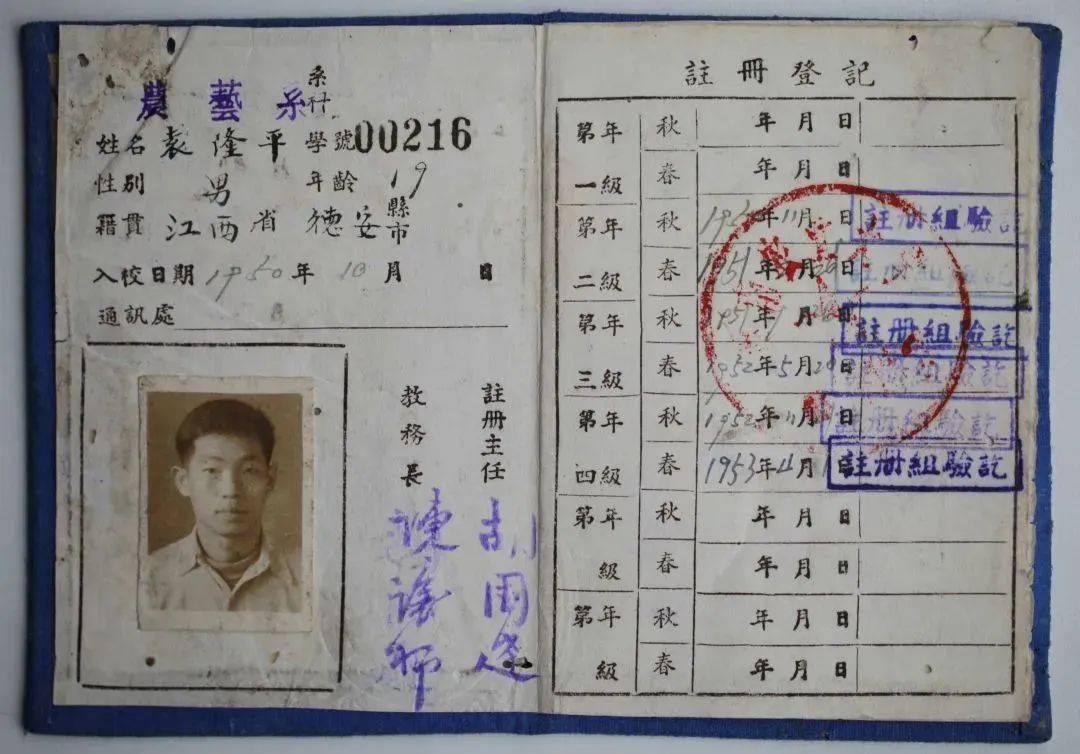 農藝系 系科
姓名 袁隆平 學號 00216
性別 男 年齡 19
籍貫 江西省 德安 縣市
入校日期 1950年10月 日
通訊處
教務長
註册主任
註冊登記
第一年級 秋 年 月 日
春 年 月 日
第二年級 秋 年11月 日 註册組驗訖
春 1951年 月 日 註册組驗訖
第三年級 秋 1951年 月 日 註册組驗訖
春 1952年5月 日 註册組驗訖
第四年級 秋 1952年11月 日 註册組驗訖
春 1953年4月 日 註册組驗訖
第 年級 秋 年 月 日
春 年 月 日
第 年級 秋 年 月 日
春 年 月 日